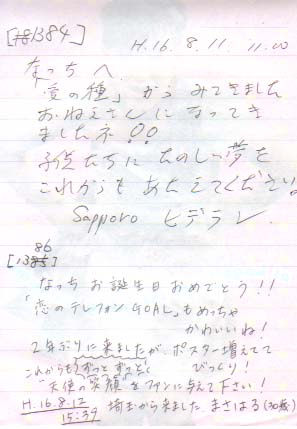 [1384]
H.16.8.11. 11.00
なっちへ
「愛の種」からみてきました
おねえさんになってき
ましたネ!!
子供たちにたのしい夢を
これからもあたえてください。
Sapporo ヒデラン
86
[1385]
なっち お誕生日おめでとう!!
「恋のテレフォンGOAL」もめっちゃ
かわいいね!
2年ぶりに来ましたが、ポスター増えてて
びっくり!
これからもずっとずっと
天使の笑顔をファンに与えて下さい!
H.16.8.12
15:39
埼玉から来ました。まさはる(30歳)